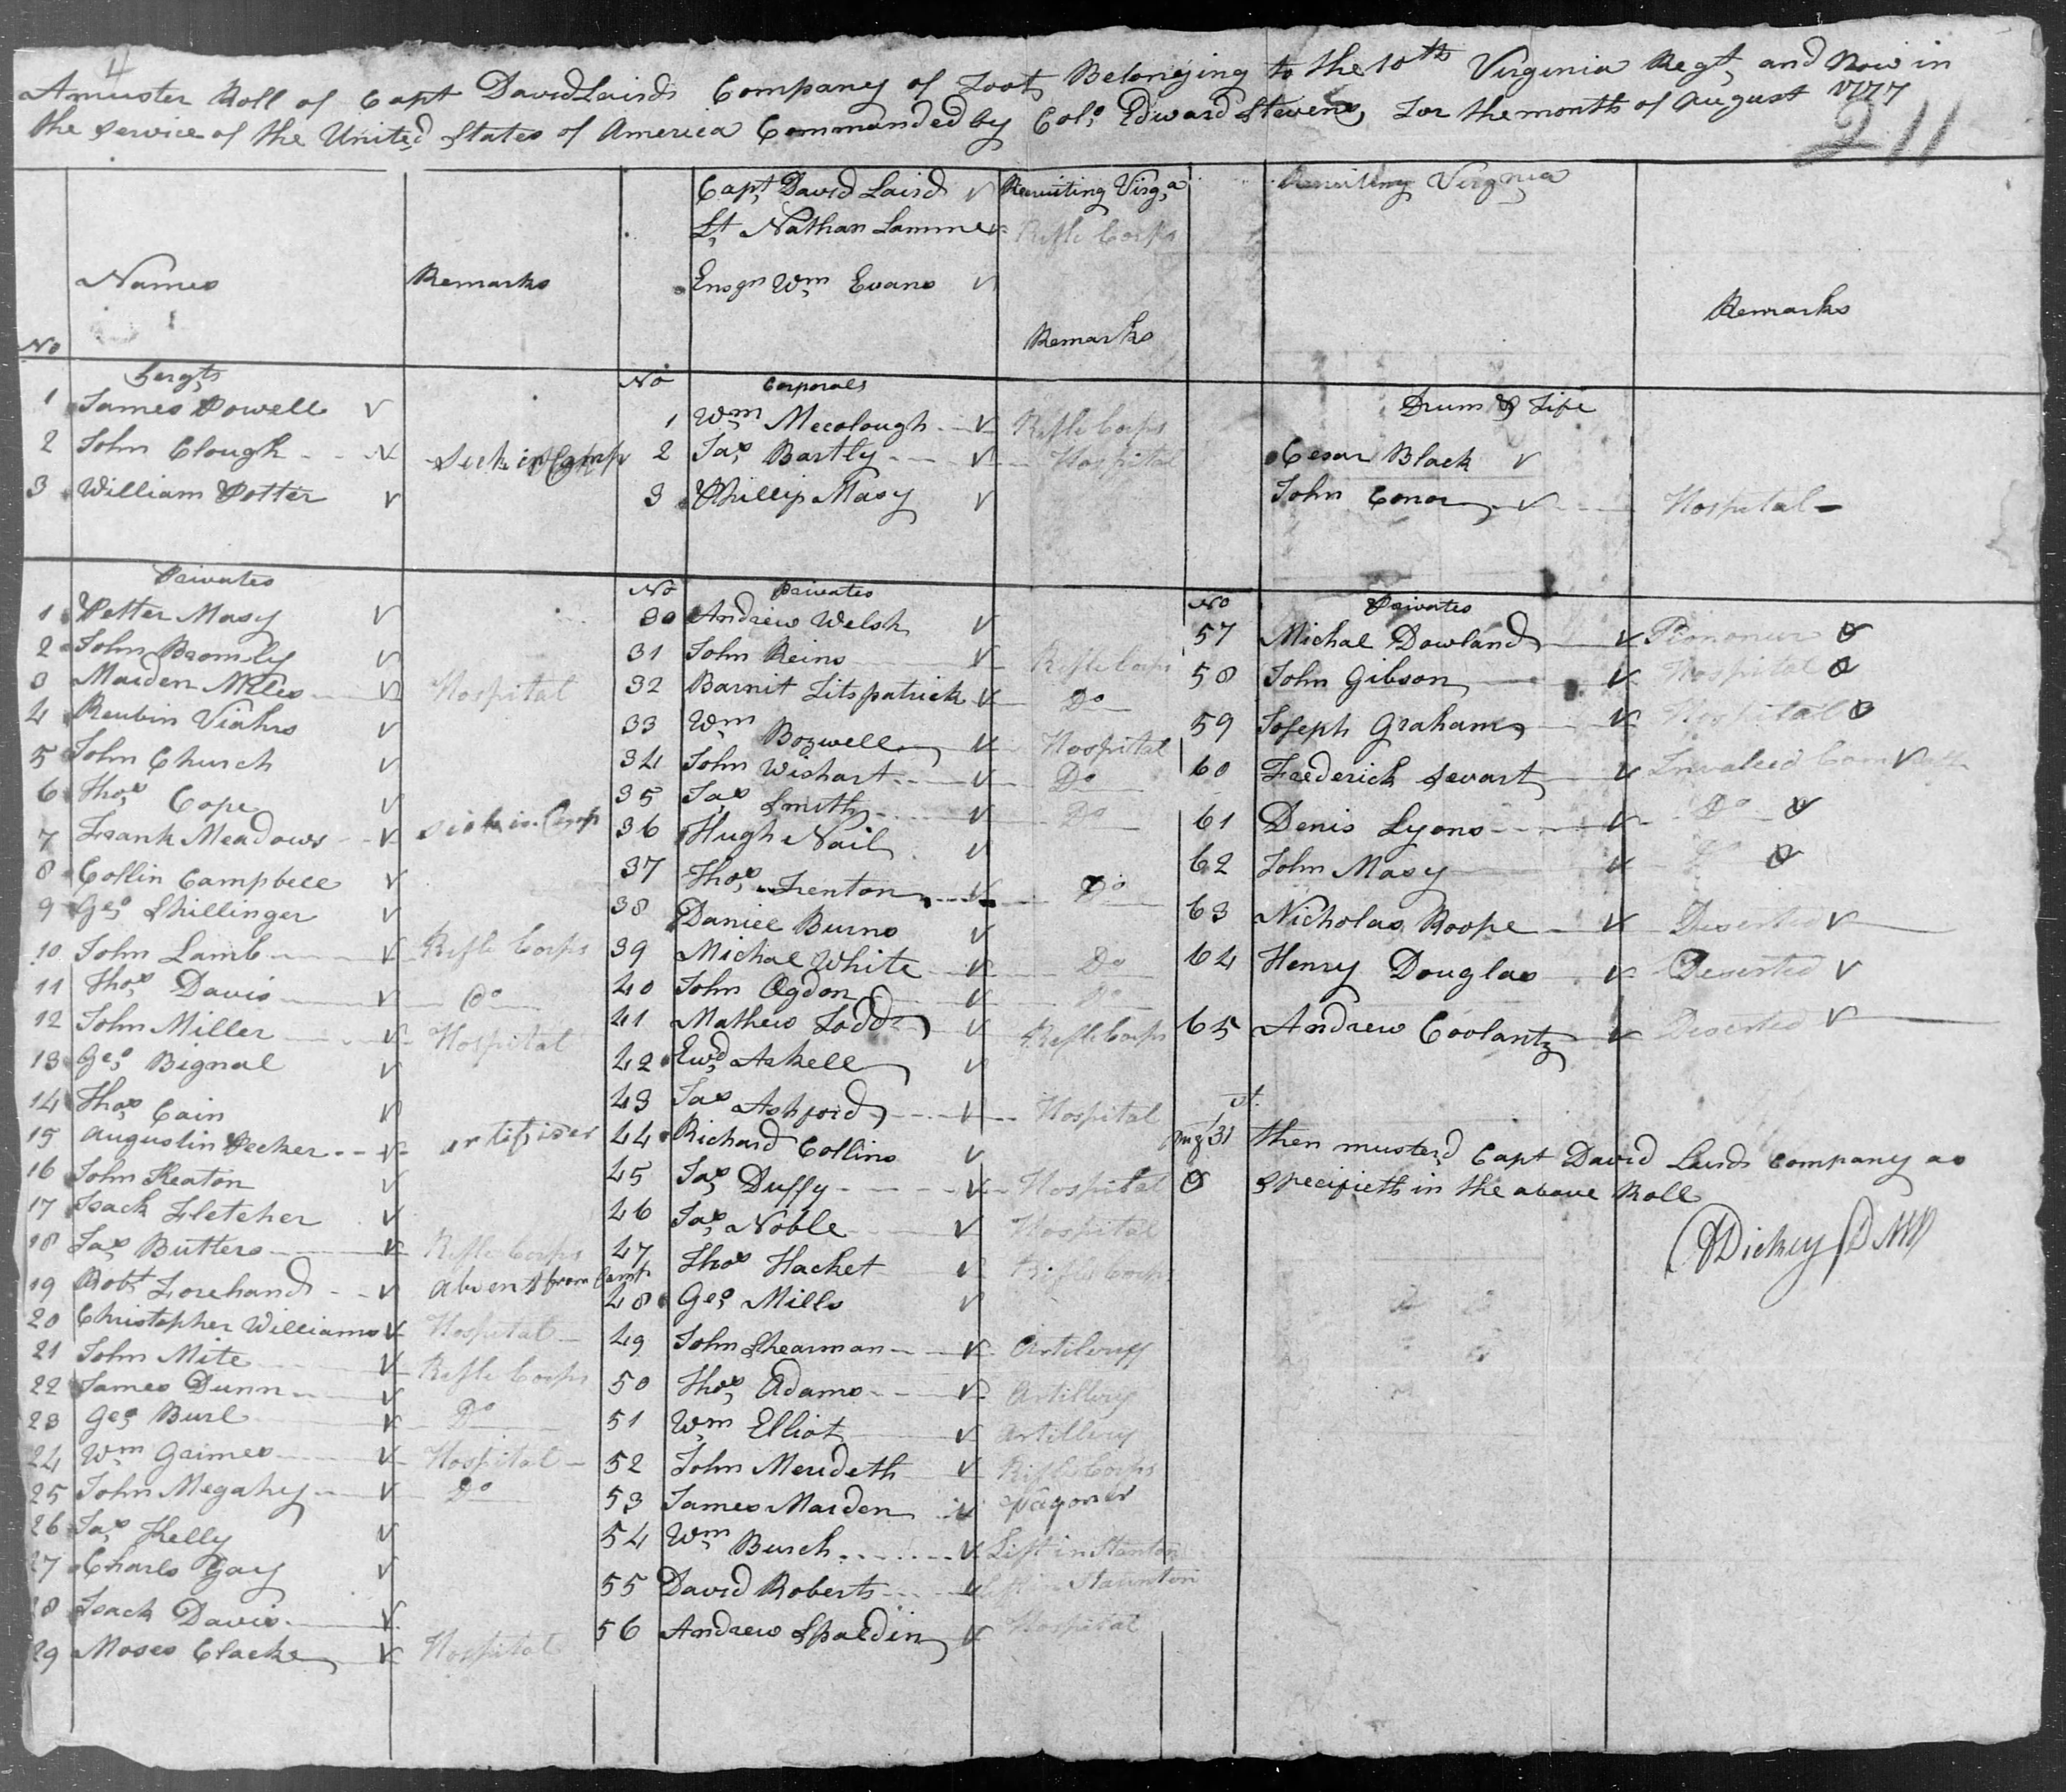 4
A muster Roll of Capt David Lairds Company of Foot, Belonging to the 10th Virginia Regt, and Now in
the Service of the United States of America Commanded by Colo. Edward Stevens, For the month of August 1777
211
Capt David Laird Recruiting Virga
Recruiting Virginia
Lt Nathan Lamme Rifle Corps
Ensgn Wm Evans
No Names Remarks
Remarks
Remarks
Sergts
1 James Powell
2 John Clough Sick in Camp
3 William Potter
No Corporals
1 Wm Mccolough Rifle Corps
2 Jas Bartly Hospital
3 Phillip Masy
Drum & Fife
Cesar Black
John Conor Hospital
Privates
1 Petter Masy
2 John Bromly
3 Maiden Milles Hospital
4 Reubin Viahrs
5 John Church
6 Thos Cope
7 Frank Meadows Sick in Camp
8 Collin Campbell
9 Geo Shillinger
10 John Lamb Rifle Corps
11 Thos Davis Do
12 John Miller Hospital
13 Geo Bignal
14 Thos Cain
15 Augustin Pecker artifiser
16 John Keaton
17 Isack Fletcher
18 Jas Butters Rifle Corps
19 Robt Forehand absent from Camp
20 Christopher Williams Hospital
21 John Mite Rifle Corps
22 James Dunn
23 Geo Burl Do
24 Wm Grimes Hospital
25 John Megahy Do
26 Jas Kelly
27 Charls Gay
28 Isack Davis
29 Moses Clacke Hospital
No Privates
30 Andrew Welsh
31 John Reins Rifle Corps
32 Barnit Fitspatrick Do
33 Wm Bozwell Hospital
34 John Wishart Do
35 Jas Smith Do
36 Hugh Nail
37 Thos Trenton Do
38 Daniel Burns
39 Michal White Do
40 John Ogdon Do
41 Mathew Todd Rifle Corps
42 Ewd Askell
43 Jas Ashford Hospital
44 Richard Collins
45 Jas Duffy Hospital
46 Jas Noble Hospital
47 Thos Hacket Rifle Corps
48 Geo Mills
49 John Shearman Artilery
50 Thos Adams Artillery
51 Wm Elliot Artillery
52 John Merideth Rifle Corps
53 James Maiden Wagoner
54 Wm Burch Left in Stanton
55 David Roberts Staunton
56 Andrew Spaldin Hospital
No Privates
57 Michal Dowland
58 John Gibson Hospital
59 Joseph Graham Hospital
60 Frederick Sevart
61 Denis Lyons Do
62 John Masy
63 Nicholas Roope Deserted
64 Henry Douglas Deserted
65 Andrew Coolantz Deserted
Augt 31st then musterd Capt David Lairds Company as
specifieth in the above Roll